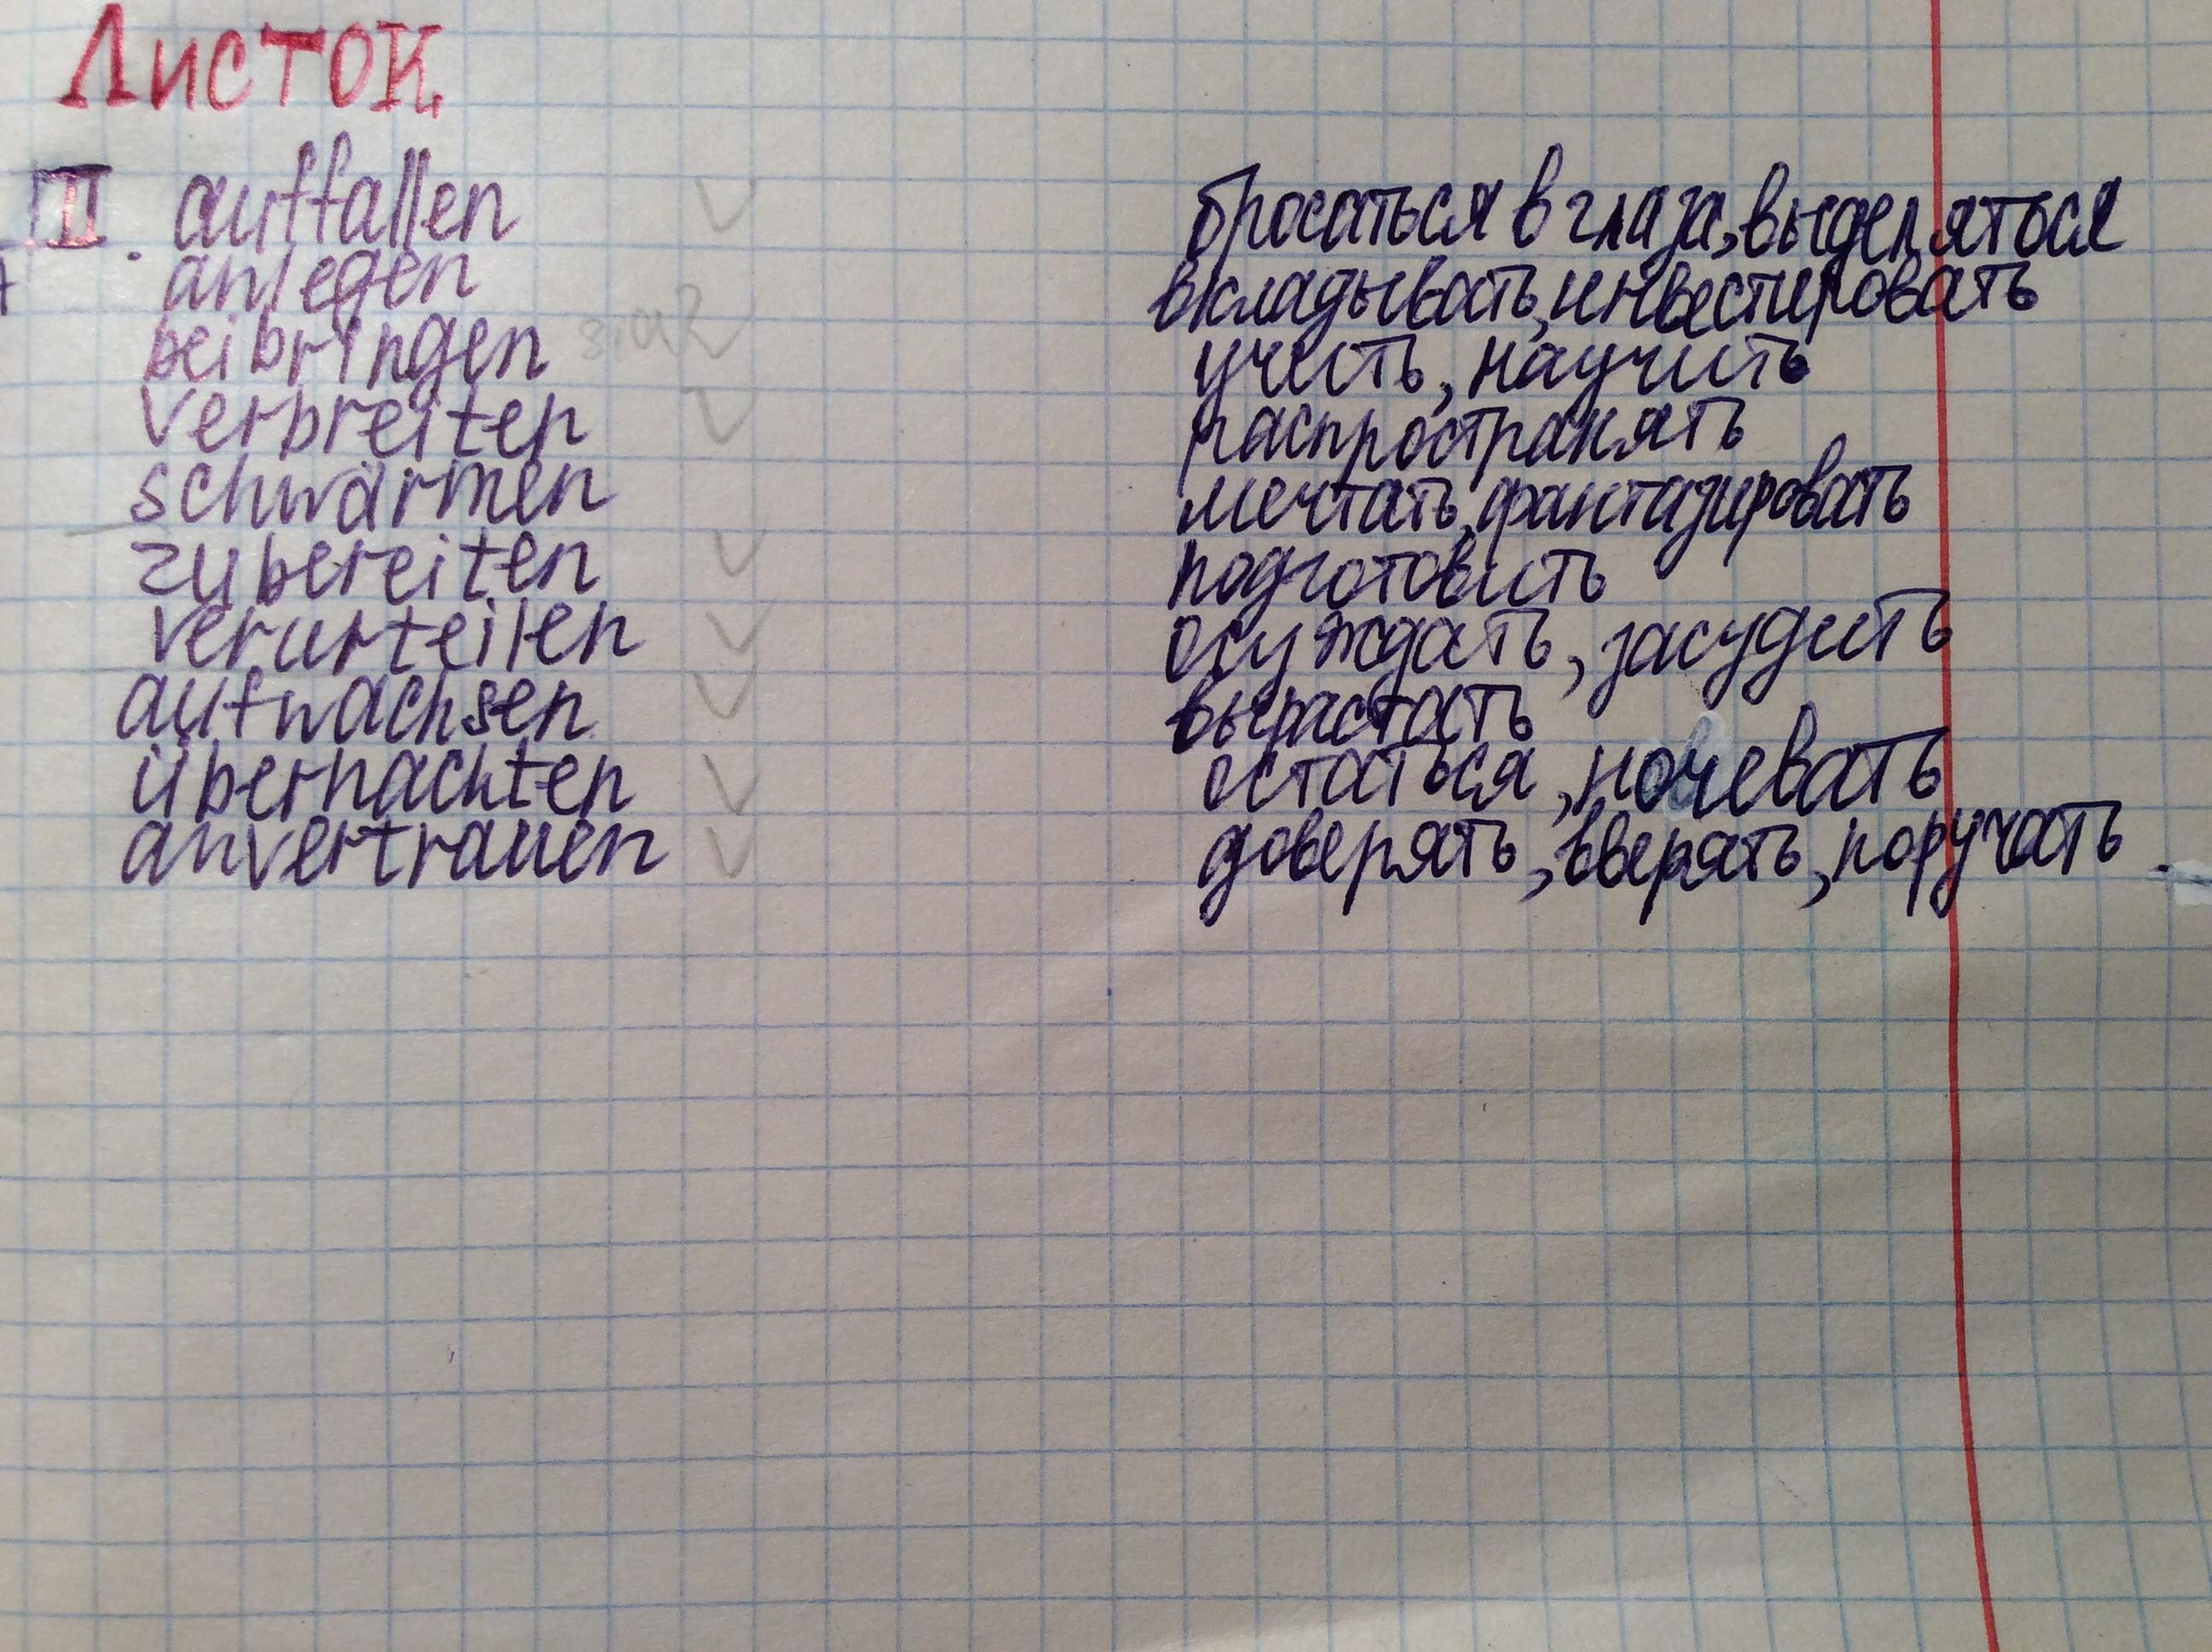 Листок
III. auffallen бросаться в глаза, выделяться
anlegen вкладывать, инвестировать
beibringen учить, научить
verbreiten распространять
schwärmen мечтать, фантазировать
zubereiten подготовить
verurteilen осуждать, засудить
aufwachsen вырастать
übernachten остаться, ночевать
anvertrauen доверять, вверять, поручать